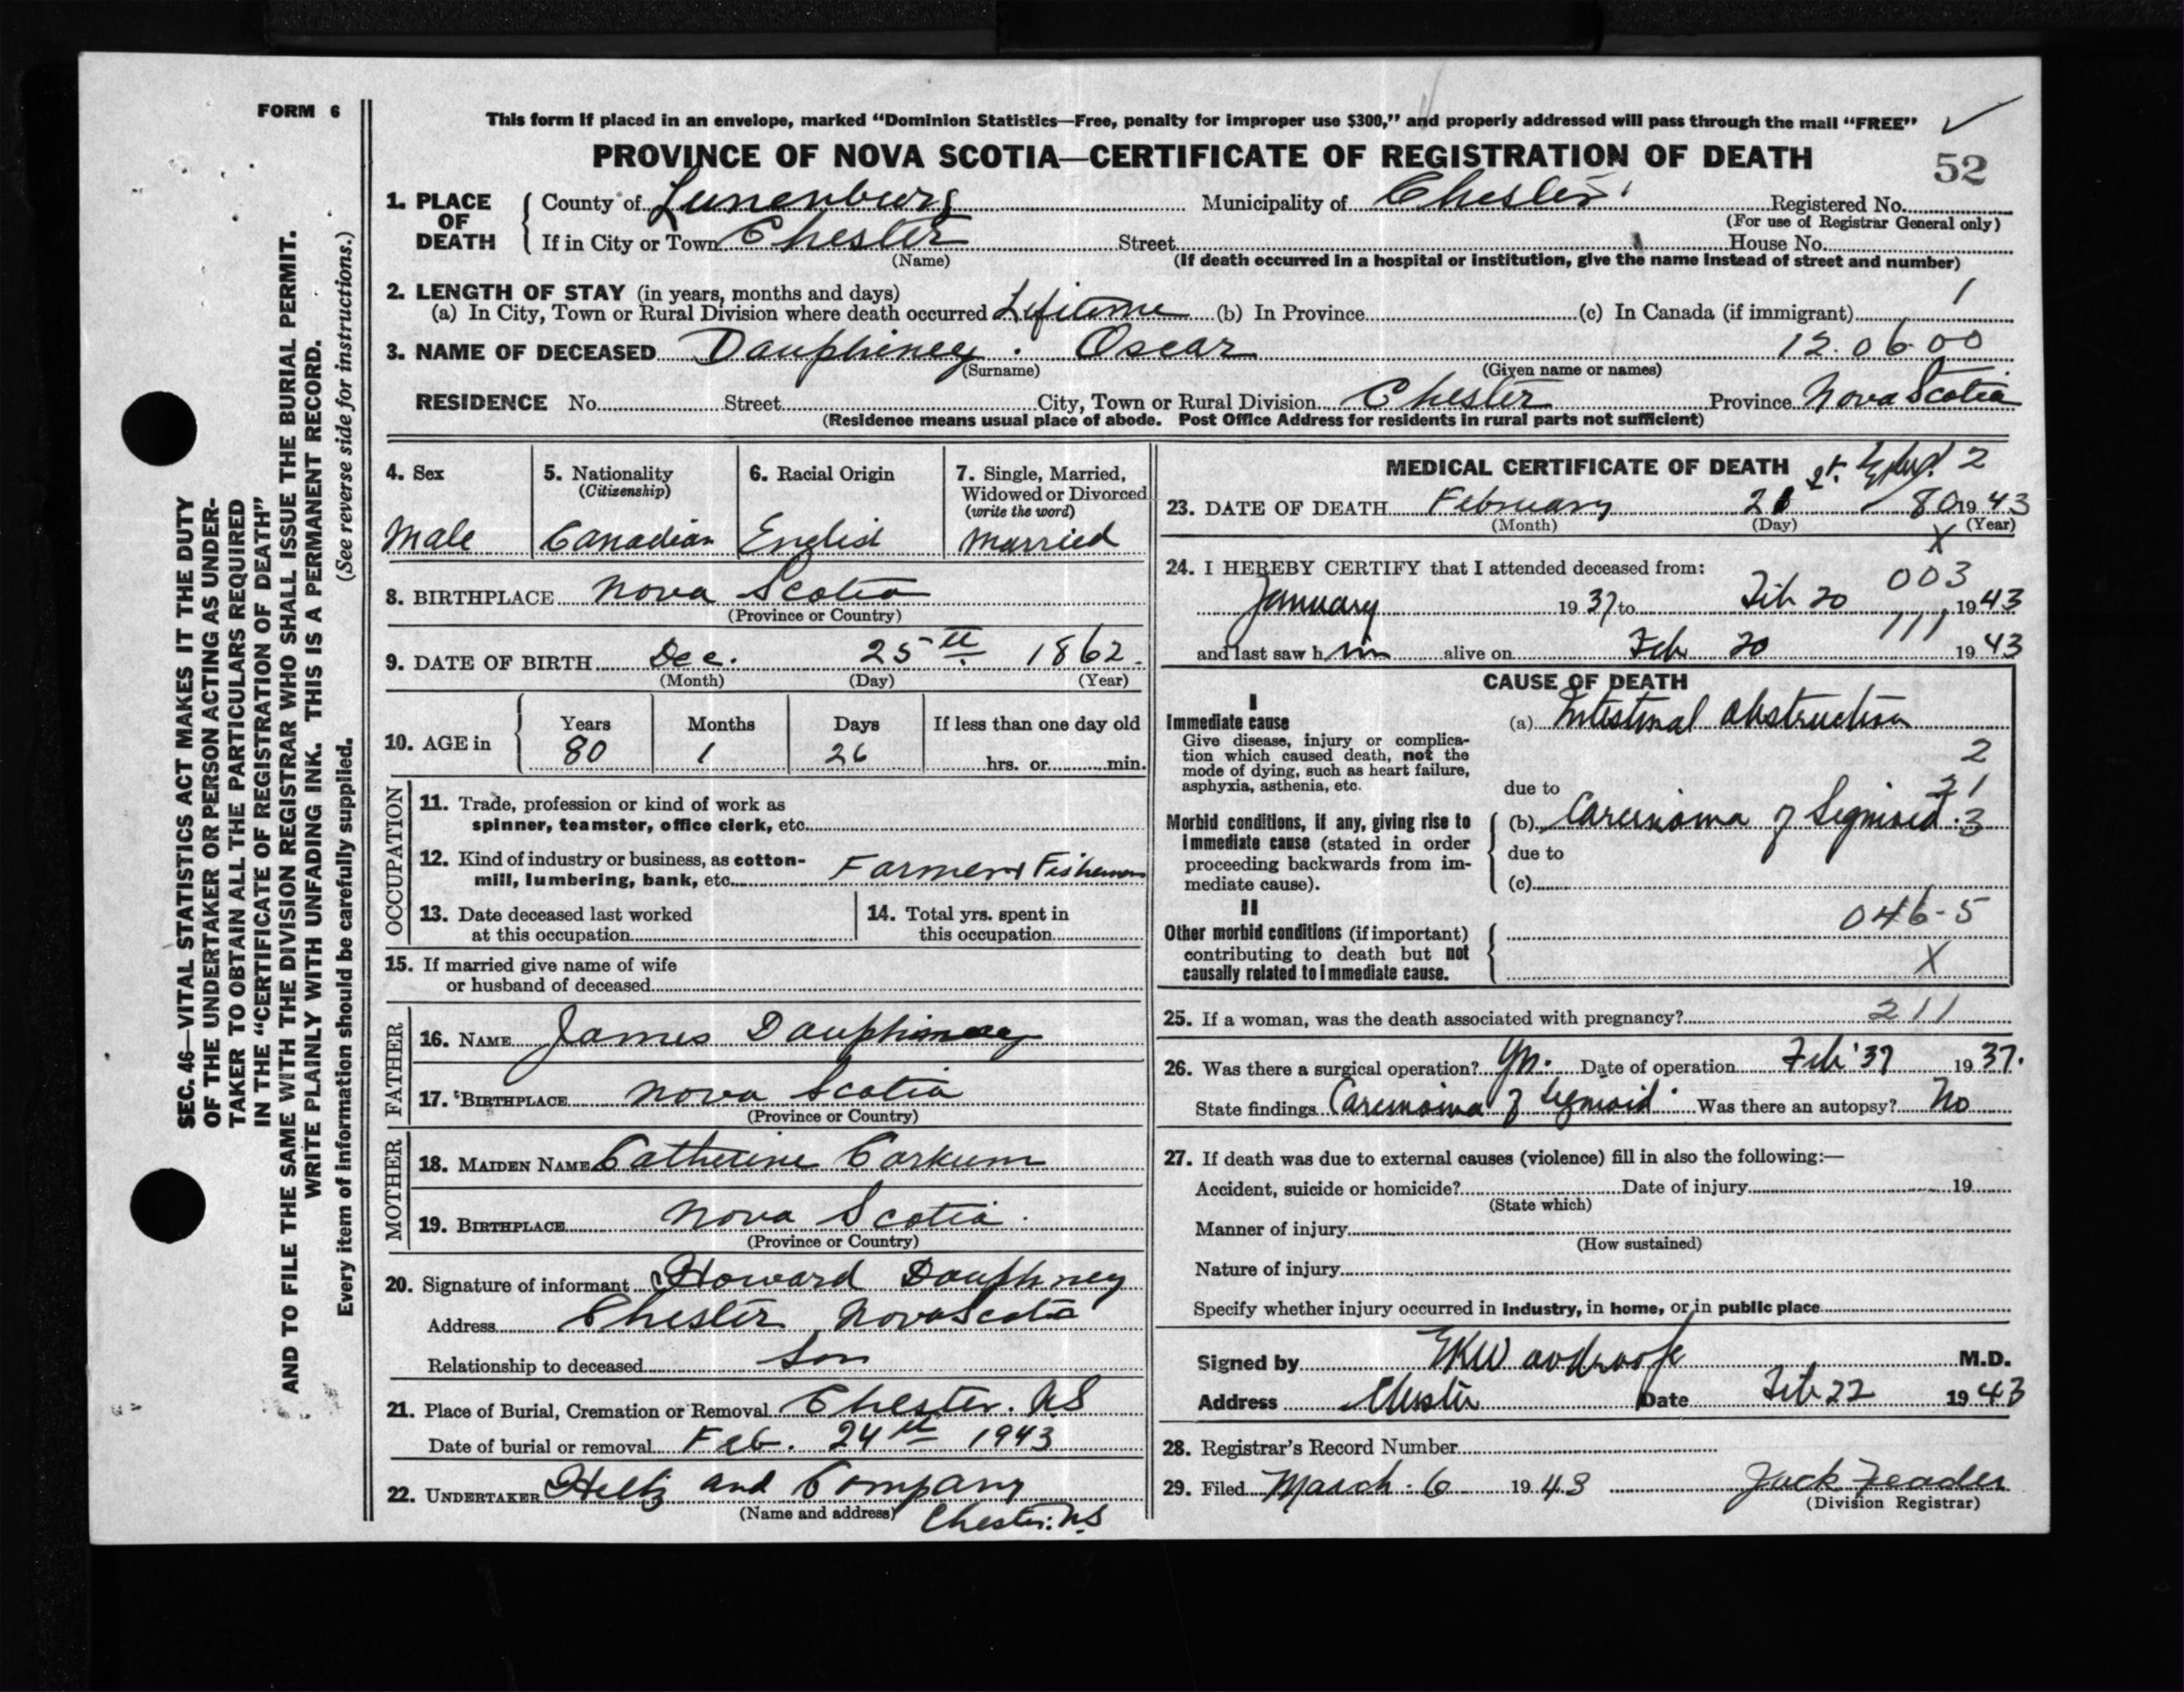 FORM 6
SEC. 46—VITAL STATISTICS ACT MAKES IT THE DUTY
OF THE UNDERTAKER OR PERSON ACTING AS UNDER-
TAKER TO OBTAIN ALL THE PARTICULARS REQUIRED
IN THE "CERTIFICATE OF REGISTRATION OF DEATH"
AND TO FILE THE SAME WITH THE DIVISION REGISTRAR WHO SHALL ISSUE THE BURIAL PERMIT.
WRITE PLAINLY WITH UNFADING INK. THIS IS A PERMANENT RECORD.
Every item of information should be carefully supplied. (See reverse side for instructions.)
This form if placed in an envelope, marked "Dominion Statistics—Free, penalty for improper use $300," and properly addressed will pass through the mail "FREE"
PROVINCE OF NOVA SCOTIA—CERTIFICATE OF REGISTRATION OF DEATH
52
1. PLACE OF DEATH County of Lunenburg Municipality of Chester Registered No.
(For use of Registrar General only)
If in City or Town Chester Street House No.
(Name) (If death occurred in a hospital or institution, give the name instead of street and number)
2. LENGTH OF STAY (in years, months and days) 1
(a) In City, Town or Rural Division where death occurred Lifetime (b) In Province (c) In Canada (if immigrant)
3. NAME OF DECEASED Dauphiney. Oscar 12.06.00
(Surname) (Given name or names)
RESIDENCE No. Street City, Town or Rural Division Chester Province Nova Scotia
(Residence means usual place of abode. Post Office Address for residents in rural parts not sufficient)
4. Sex
Male
5. Nationality
(Citizenship)
Canadian
6. Racial Origin
English
7. Single, Married,
Widowed or Divorced
(write the word)
Married
8. BIRTHPLACE Nova Scotia
(Province or Country)
9. DATE OF BIRTH Dec. 25th 1862.
(Month) (Day) (Year)
10. AGE in
Years Months Days If less than one day old
80 1 26 hrs. or min.
OCCUPATION
11. Trade, profession or kind of work as
spinner, teamster, office clerk, etc.
12. Kind of industry or business, as cotton-
mill, lumbering, bank, etc. Farmer & Fisherman
13. Date deceased last worked
at this occupation
14. Total yrs. spent in
this occupation
15. If married give name of wife
or husband of deceased
FATHER
16. NAME James Dauphiney
17. BIRTHPLACE Nova Scotia
(Province or Country)
MOTHER
18. MAIDEN NAME Catherine Corkum
19. BIRTHPLACE Nova Scotia.
(Province or Country)
20. Signature of informant Howard Dauphney
Address Chester Nova Scotia
Relationship to deceased Son
21. Place of Burial, Cremation or Removal Chester. NS
Date of burial or removal Feb. 24th 1943
22. UNDERTAKER Hiltz and Company
(Name and address) Chester. NS
MEDICAL CERTIFICATE OF DEATH 2
23. DATE OF DEATH February 21 80 1943
(Month) (Day) (Year)
X
24. I HEREBY CERTIFY that I attended deceased from:
003
January 1937 to Feb 20 1943
111
and last saw him alive on Feb 20 1943
CAUSE OF DEATH
I
Immediate cause
Give disease, injury or complica-
tion which caused death, not the
mode of dying, such as heart failure,
asphyxia, asthenia, etc.
(a) Intestinal obstruction
2
due to 21
Morbid conditions, if any, giving rise to
immediate cause (stated in order
proceeding backwards from im-
mediate cause).
(b) Carcinoma of Sigmoid. 3
due to
(c)
II
Other morbid conditions (if important)
contributing to death but not
causally related to immediate cause.
046-5
X
25. If a woman, was the death associated with pregnancy? 211
26. Was there a surgical operation? Yes. Date of operation Feb '37 1937.
State findings Carcinoma of Sigmoid Was there an autopsy? No
27. If death was due to external causes (violence) fill in also the following:—
Accident, suicide or homicide? Date of injury 19
(State which)
Manner of injury
(How sustained)
Nature of injury
Specify whether injury occurred in industry, in home, or in public place
Signed by M.D.
Address Chester Date Feb 22 1943
28. Registrar's Record Number
29. Filed March. 6 1943 Jack Zeader
(Division Registrar)